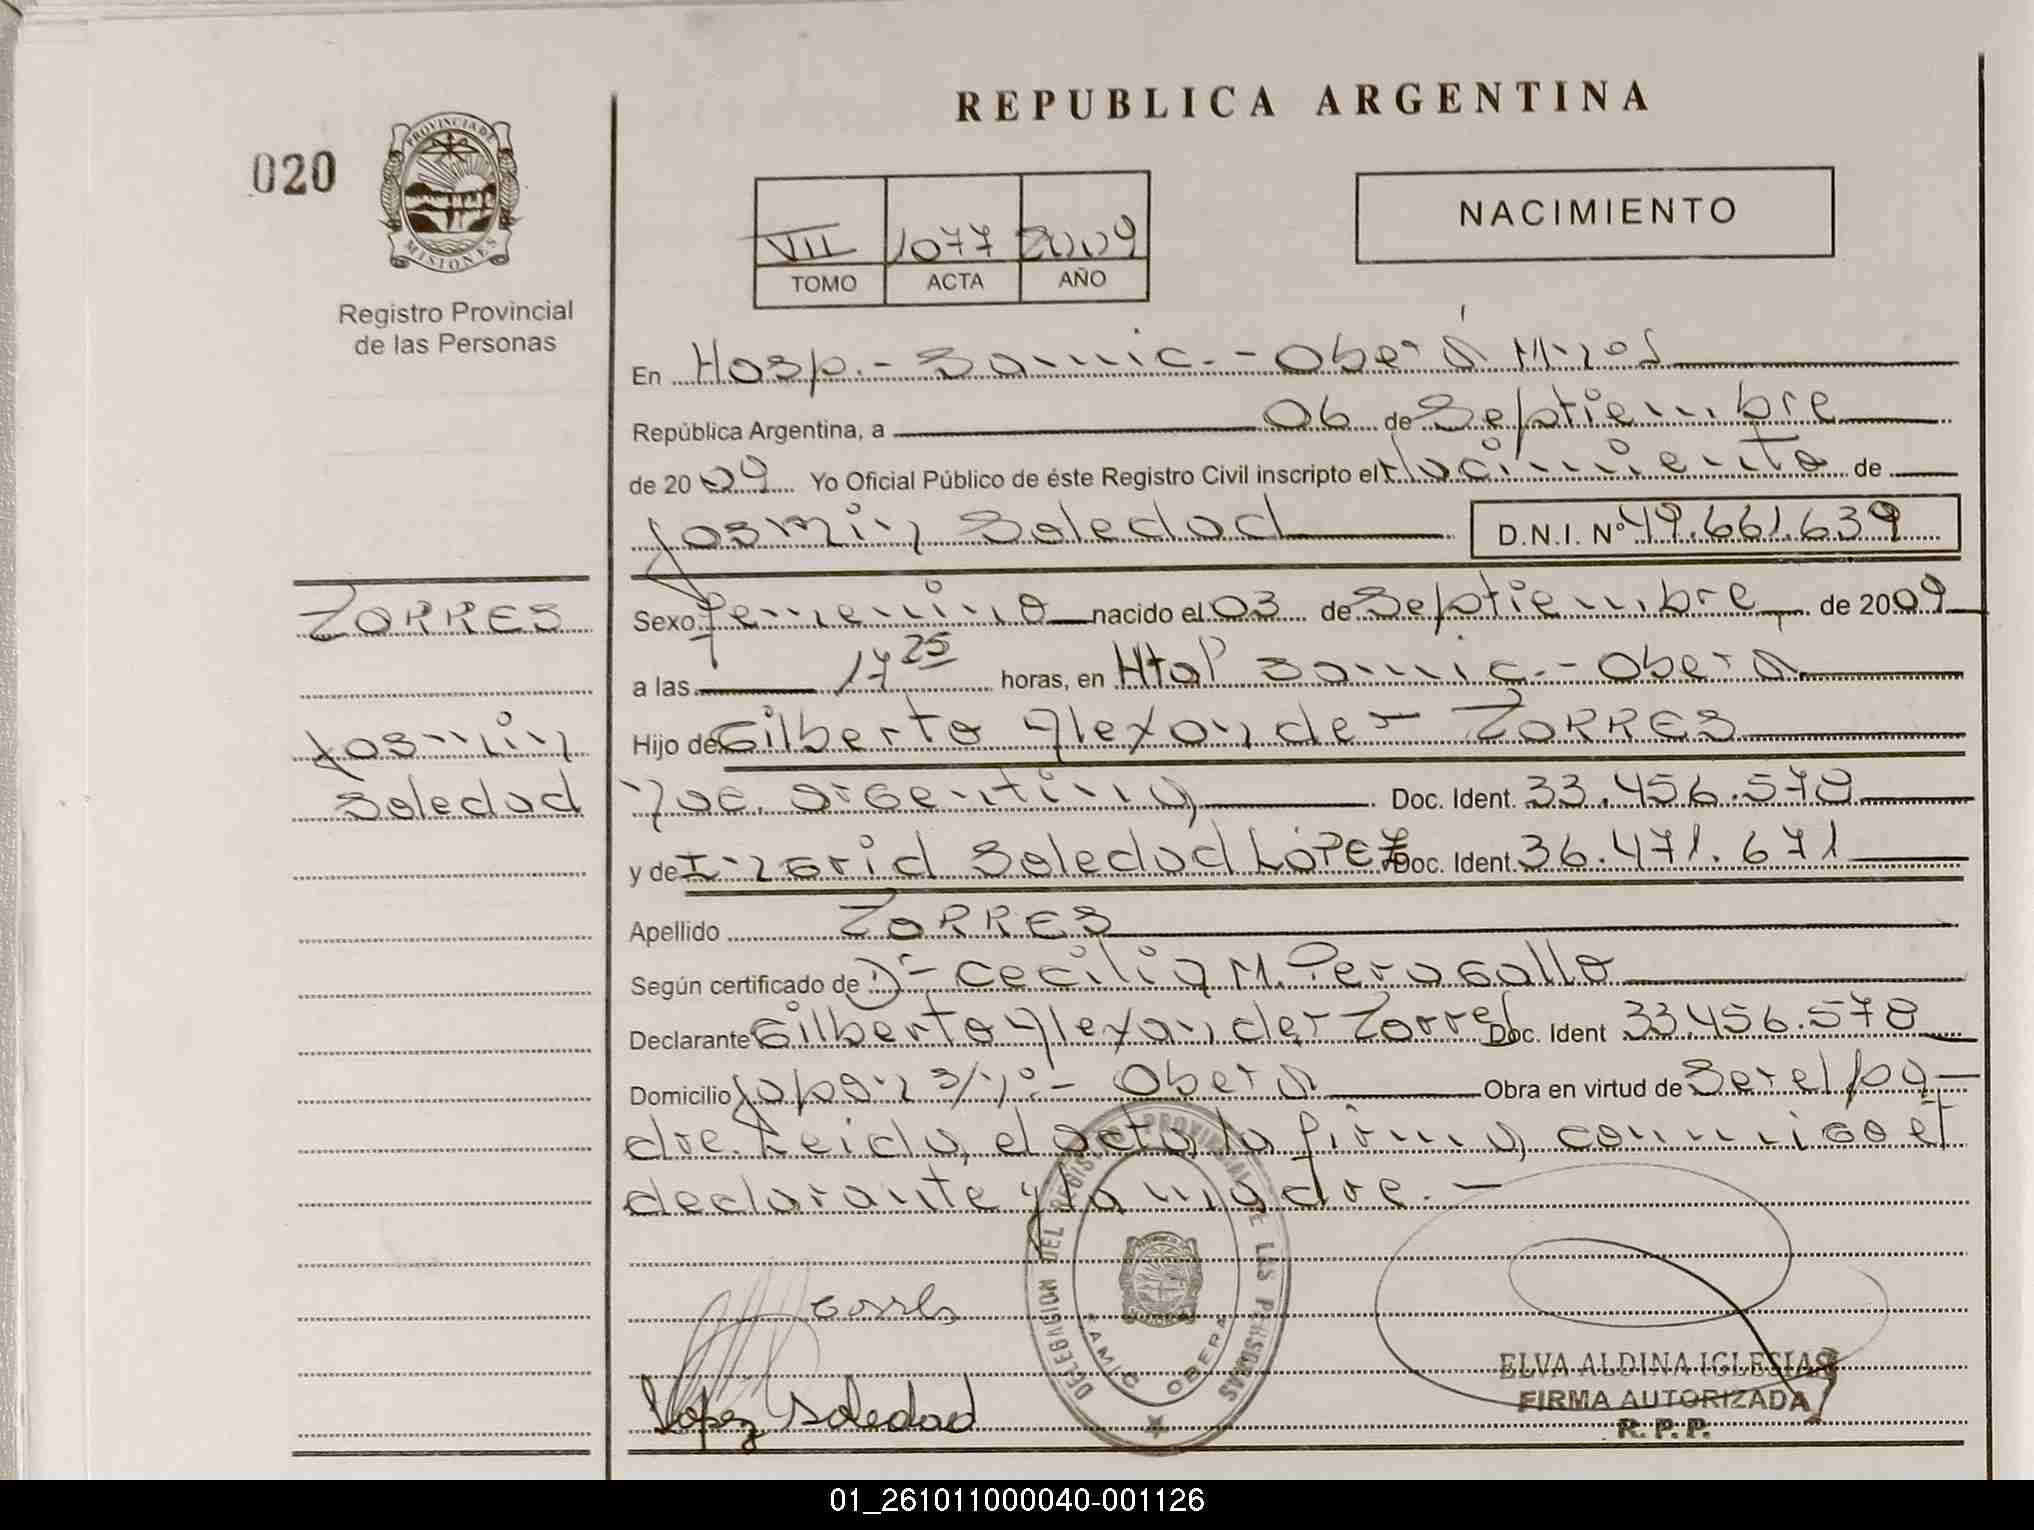 REPUBLICA ARGENTINA
020
PROVINCIA DE
MISIONES
Registro Provincial
de las Personas
VII 1077 2009
TOMO ACTA AÑO
NACIMIENTO
En Hosp.- Samic.- Oberá Mnes
República Argentina, a 06 de Septiembre
de 2009 Yo Oficial Público de éste Registro Civil inscripto el Nacimiento de
Jasmin Soledad D.N.I. Nº 49.661.639
TORRES
Sexo femenino nacido el 03 de Septiembre de 2009
a las 17 25 horas, en Htal Samic.- Oberá
Jasmin
Soledad
Hijo de Gilberto Alexander TORRES
nac. argentina Doc. Ident. 33.456.578
y de Ingrid Soledad LÓPEZ Doc. Ident. 36.471.671
Apellido TORRES
Según certificado de Dr- Cecilia M. Perogallo
Declarante Gilberto Alexander Torres Doc. Ident 33.456.578
Domicilio Japón s/nº- Oberá Obra en virtud de Ser el pa-
dre. Leida el acta, la firma conmigo el
declarante y la madre.-
DELEGACION DEL REGISTRO PROVINCIAL DE LAS PERSONAS
SAMIC OBERA
Torres
Lopez Soledad
ELVA ALDINA IGLESIAS
FIRMA AUTORIZADA
R. P. P.
01_261011000040-001126